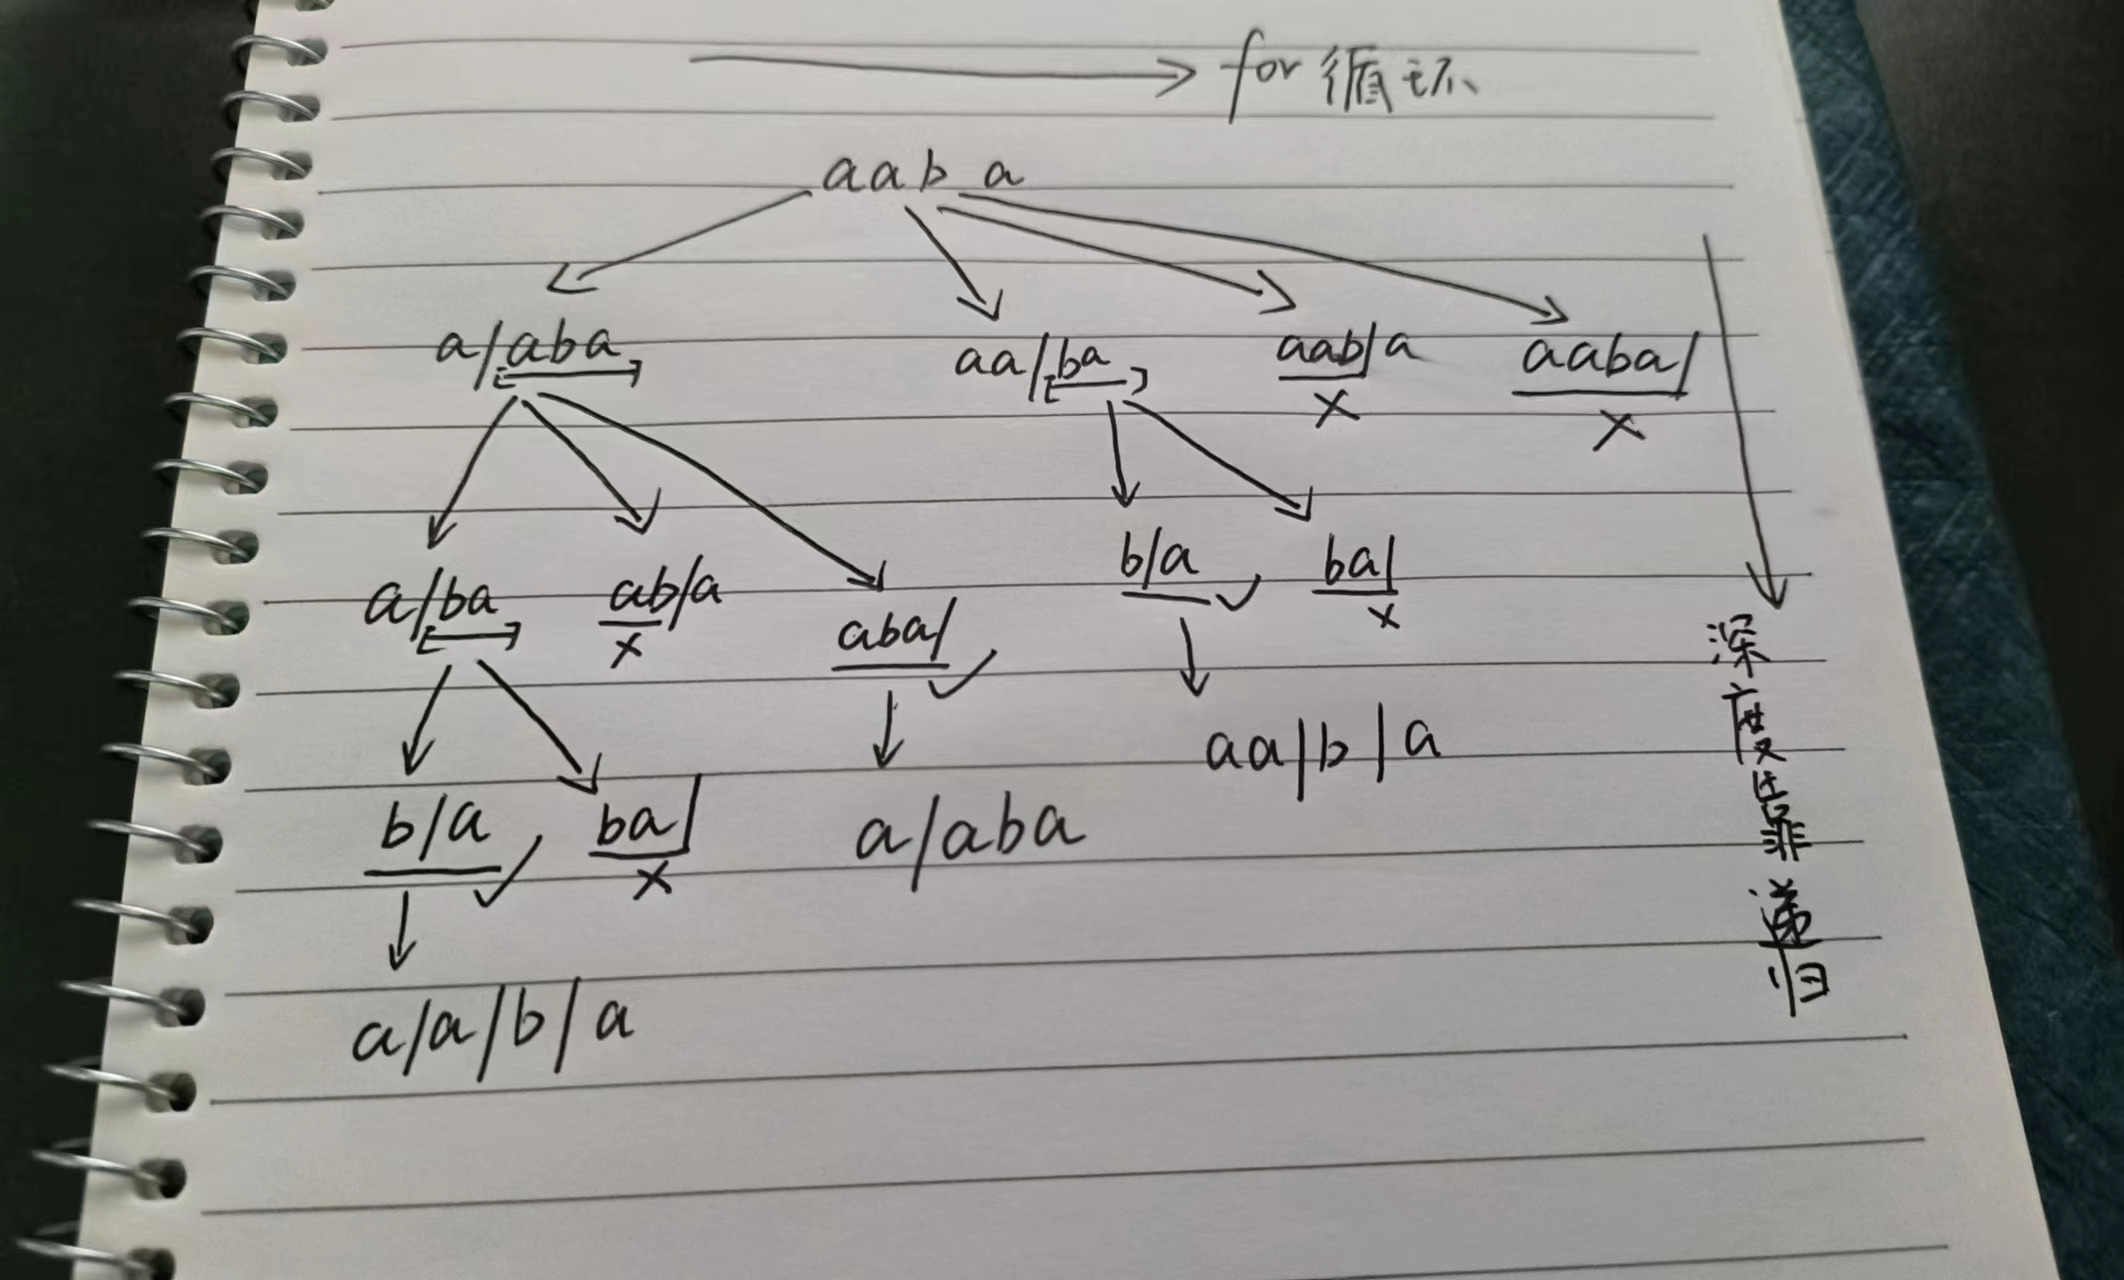 for循环
aaba
a/aba aa/ba aab/a aaba/
× ×
b/a ba/
a/ba ab/a aba/ ✓ ×
× ✓
aa|b|a
b/a ba/ a/aba
✓ ×
a/a/b/a
深度靠递归